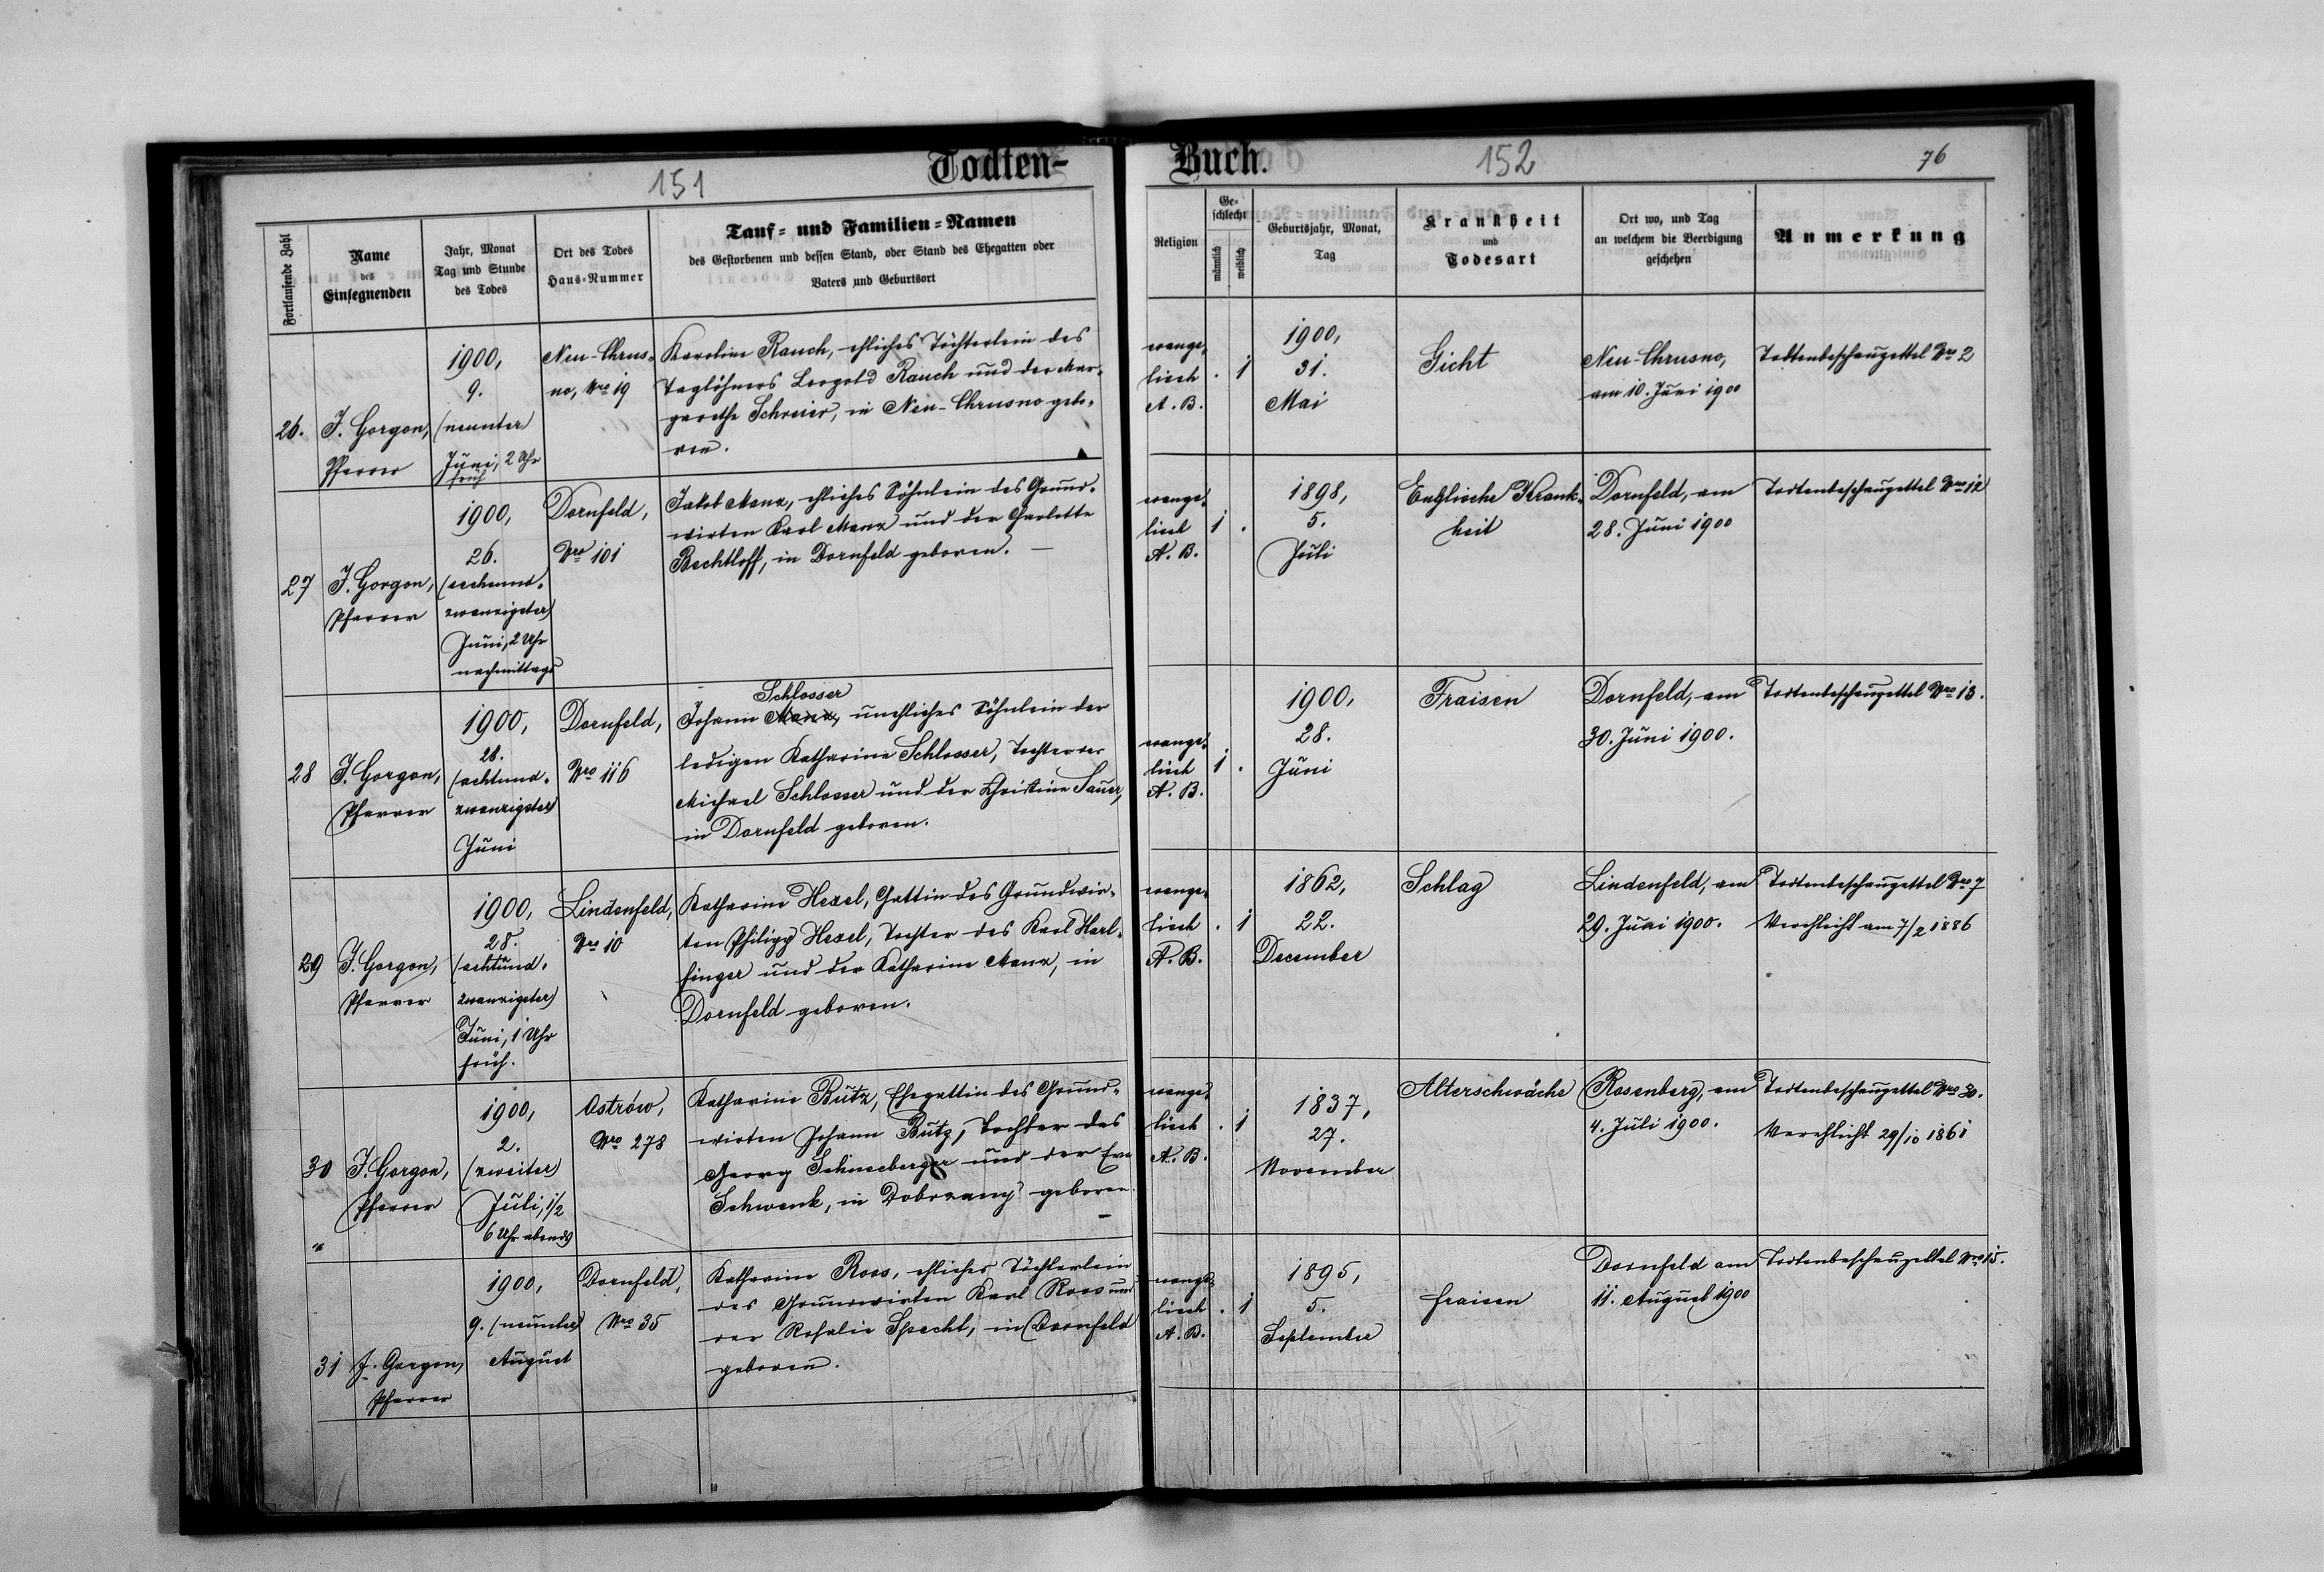 151
Todten-
Fortlaufende Zahl
Name
des
Einsegnenden
Jahr, Monat
Tag und Stunde
des Todes
Ort des Todes
Haus-Nummer
Tauf- und Familien-Namen
des Gestorbenen und dessen Stand, oder Stand des Ehegatten oder
Vaters und Geburtsort
26.
J. Gorgon,
Pfarrer
1900,
9.
(neunter)
Juni, 2 Uhr
früh
Neu-Chrus-
no, Nro 19
Karoline Rauch, ehliches Töchterlein des
Taglöhners Leopold Rauch und der Mar-
garethe Schreier, in Neu-Chrusno gebo-
ren.
27
J. Gorgon,
Pfarrer
1900,
26.
(sechsund-
zwanzigster)
Juni, 2 Uhr
nachmittags
Dornfeld,
Nro 101
Jakob Manz, ehliches Söhnlein des Grund-
wirten Karl Manz und der Charlotte
Bechtloff, in Dornfeld geboren. —
28
J. Gorgon,
Pfarrer
1900,
28.
(achtund-
zwanzigster)
Juni
Dornfeld,
Nro 116
Schlosser
Johann Manz, unehliches Söhnlein der
ledigen Katharine Schlosser, Tochter des
Michael Schlosser und der Christine Sauer,
in Dornfeld geboren.
29
J. Gorgon,
Pfarrer
1900,
28.
(achtund-
zwanzigster)
Juni, 1 Uhr
früh.
Lindenfeld,
Nro 10
Katharine Hexel, Gattin des Grundwir-
ten Philipp Hexel, Tochter des Karl Harl-
finger und der Katharine Manz, in
Dornfeld geboren.
30
J. Gorgon,
Pfarrer
1900,
2.
(zweiter)
Juli, 1/2
6 Uhr abends
Ostrów,
Nro 278
Katharine Butz, Ehegattin des Grund-
wirten Johann Butz, Tochter des
Georg Schneeberger und der Eva
Schwenk, in Dobrzany geboren.
31
J. Gorgon,
Pfarrer
1900,
9. (neunter)
August
Dornfeld,
Nro 35
Katharine Roos, ehliches Töchterlein
des Grundwirten Karl Roos und
der Rosalie Specht, in Dornfeld
geboren.
Buch.
152
76
Religion
Ge-
schlecht
männlich
weiblich
Geburtsjahr, Monat,
Tag
Krankheit
und
Todesart
Ort wo, und Tag
an welchem die Beerdigung
geschehen
Anmerkung
evange-
lisch
A. B.
. 1
1900,
31.
Mai
Gicht
Neu-Chrusno,
am 10. Juni 1900
Todtenbeschauzettel Nro 2
evange-
lisch
A. B.
1 .
1898,
5.
Juli
Englische Krank-
heit
Dornfeld, am
28. Juni 1900
Todtenbeschauzettel Nro 12
evange-
lisch
A. B.
1 .
1900,
28.
Juni
Fraisen
Dornfeld, am
30. Juni 1900.
Todtenbeschauzettel Nro 13.
evange-
lisch
A. B.
. 1
1862,
22.
December
Schlag
Lindenfeld, am
29. Juni 1900.
Todtenbeschauzettel Nro 7
Verehlicht am 7/2 1886
evange-
lisch
A. B.
. 1
1837,
27.
November
Alterschwäche
Rosenberg, am
4. Juli 1900.
Todtenbeschauzettel Nro 30.
Verehlicht 29/10 1861
evange-
lisch
A. B.
. 1
1895,
5.
September
Fraisen
Dornfeld am
11. August 1900
Todtenbeschauzettel Nro 15.